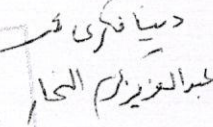 دينا فكرى
عبد العزيز النجار